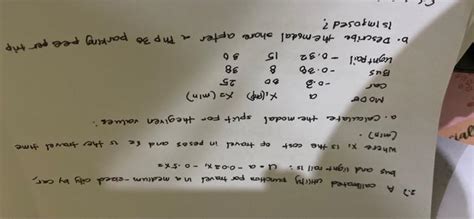 2.) A calibrated utility function for travel in a medium-sized city by car,
bus and light rail is: U = a - 0.02X, - 0.5X2
where X, is the cost of travel in pesos and X2 is the travel time
(min).
a. Calculate the modal split for the given values:
MODE a X,(₱) X2 (min)
Car -0.3 80 25
Bus -0.38 8 38
Light rail -0.32 15 30
b. Describe the modal share after a Php 30 parking fees per trip
is imposed?